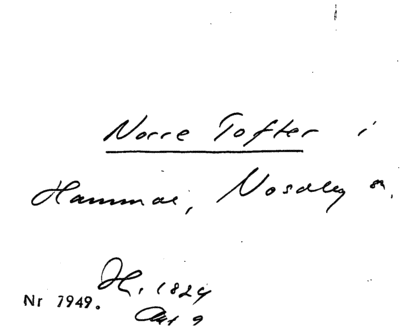 Norre Tofter i
Hammar, Nosaby sn.
Hl. 1824
Nr 7949. Akt 9